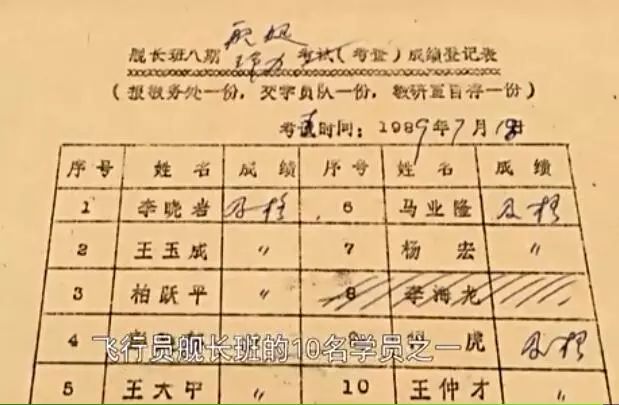 舰长班八期 考试(考查)成绩登记表
(报教务处一份,交学员队一份,教研室自存一份)
考试时间:1989年7月18日
序号 姓名 成绩 序号 姓名 成绩
1 李晓岩 及格 6 马业隆 及格
2 王玉成 〃 7 杨宏 〃
3 柏跃平 〃 8 李海龙
4 虎 及格
飞行员舰长班的10名学员之一
5 王大中 〃 10 王仲才 〃